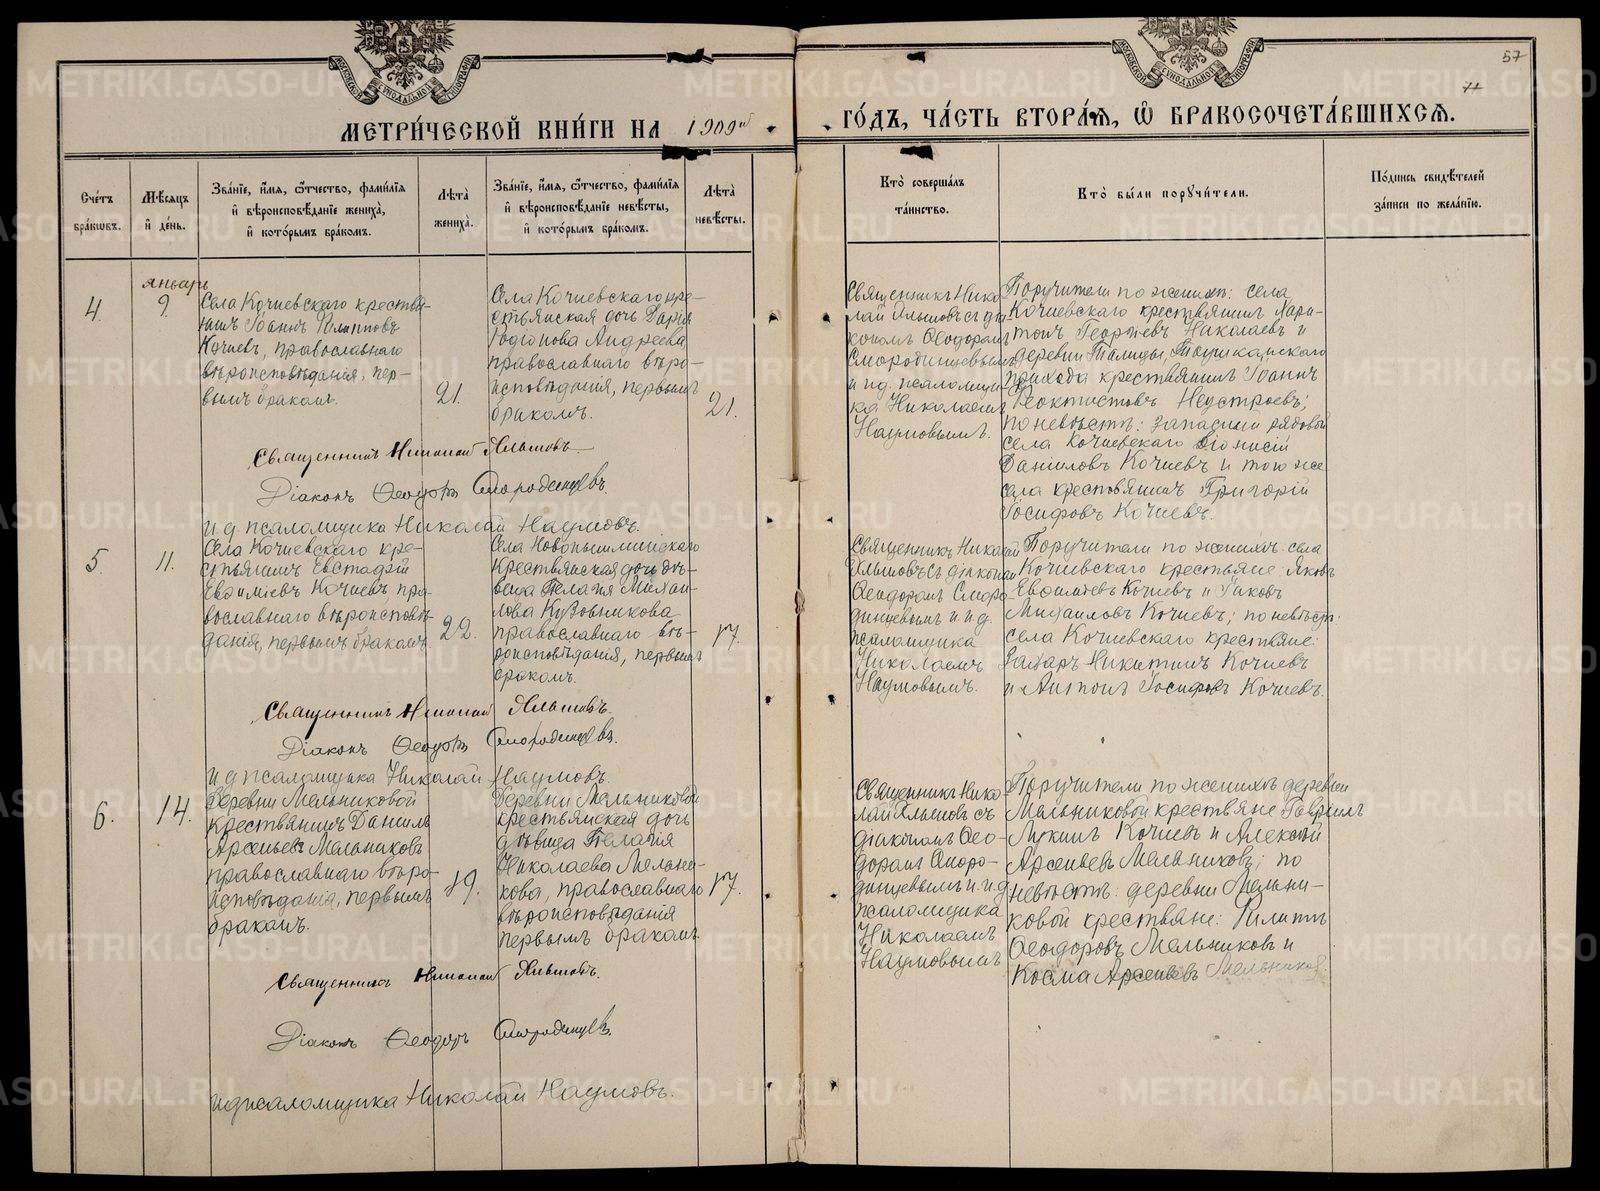 57
71
МЕТРИ́ЧЕСКОЙ КНИ́ГИ НА 1909й
ГО́ДЪ, ЧА́СТЬ ВТОРА́Я, Ѡ БРАКОСОЧЕТА́ВШИХСЯ.
Сче́тъ бра́ковъ.
Мѣ́сяцъ и де́нь.
Зва́нїе, и́мя, ѻ́тчество, фами́лїя и вѣроисповѣ́данїе жениха̀, и кото́рымъ бра́комъ.
Лѣта̀ жениха̀.
Зва́нїе, и́мя, ѻ́тчество, фами́лїя и вѣроисповѣ́данїе невѣ́сты, и кото́рымъ бра́комъ.
Лѣта̀ невѣ́сты.
Кто̀ соверша́лъ та́инство.
Кто̀ бы́ли поручи́тели.
По́дпись свидѣ́телей за́писи по жела́нїю.
4.
январь
9.
Села Кочневскаго крестья-
нинъ Іоаннъ Филипповъ
Кочневъ, православнаго
вѣроисповѣданія, пер-
вымъ бракомъ.
21.
Села Кочневскаго кре-
стьянская дочь Дарія
Родіонова Андреева
православнаго вѣро-
исповѣданія, первымъ
бракомъ.
21.
Священникъ Нико-
лай Яльшовъ съ діа-
кономъ Ѳеодоромъ
Смородинцевымъ
и и.д. псаломщи-
ка Николаемъ
Наумовымъ.
Поручители по женихѣ: села
Кочневскаго крестьянинъ Хари-
тонъ Георгіевъ Николаевъ и
деревни Талицы,
прихода крестьянинъ Іоаннъ
Феоктистовъ Неустроевъ;
по невѣстѣ: запасный рядовой
села Кочневскаго Діонисій
Даніиловъ Кочневъ и того же
села крестьянинъ Григорій
Іосифовъ Кочневъ.
Священникъ Николай Яльшовъ
Діаконъ Ѳеодоръ Смородинцевъ.
и д псаломщика Николай Наумовъ.
5.
11.
Села Кочневскаго кре-
стьянинъ Евстафій
Евѳиміевъ Кочневъ пра-
вославнаго вѣроисповѣ-
данія, первымъ бракомъ.
22.
Села Новопышминскаго
крестьянская дочь дѣ-
вица Пелагія Михаи-
лова Кузовникова
православнаго вѣ-
роисповѣданія, первымъ
бракомъ.
17.
Священникъ Николай
Яльшовъ съ діакономъ
Ѳеодоромъ Сморо-
динцевымъ и и.д.
псаломщика
Николаемъ
Наумовымъ.
Поручители по женихѣ: села
Кочневскаго крестьяне: Яковъ
Евфиміевъ Кочневъ и Іаковъ
Михаиловъ Кочневъ; по невѣстѣ:
села Кочневскаго крестьяне:
Захаръ Никитинъ Кочневъ
и Антонъ Іосифовъ Кочневъ.
Священникъ Николай Яльшовъ.
Діаконъ Ѳеодоръ Смородинцевъ.
и д псаломщика Николай Наумовъ.
6.
14.
Деревни Мельниковой
крестьянинъ Даніилъ
Арсеньевъ Мельниковъ
православнаго вѣро-
исповѣданія, первымъ
бракомъ.
19.
Деревни Мельниковой
крестьянская дочь
дѣвица Пелагія
Николаева Мельни-
кова, православнаго
вѣроисповѣданія
первымъ бракомъ.
17.
Священникъ Нико-
лай Яльшовъ съ
діакономъ Ѳео-
доромъ Сморо-
динцевымъ и и.д
псаломщика
Николаемъ
Наумовымъ
Поручители по женихѣ деревни
Мельниковой крестьяне Гавріилъ
Лукинъ Кочневъ и Алексѣй
Арсеньевъ Мельниковъ; по
невѣстѣ: деревни Мельни-
ковой крестьяне: Филиппъ
Ѳеодоровъ Мельниковъ и
Косма Арсеньевъ Мельниковъ
Священникъ Николай Яльшовъ.
Діаконъ Ѳеодоръ Смородинцевъ.
и д псаломщика Николай Наумовъ.
METRIKI.GASO-URAL.RU